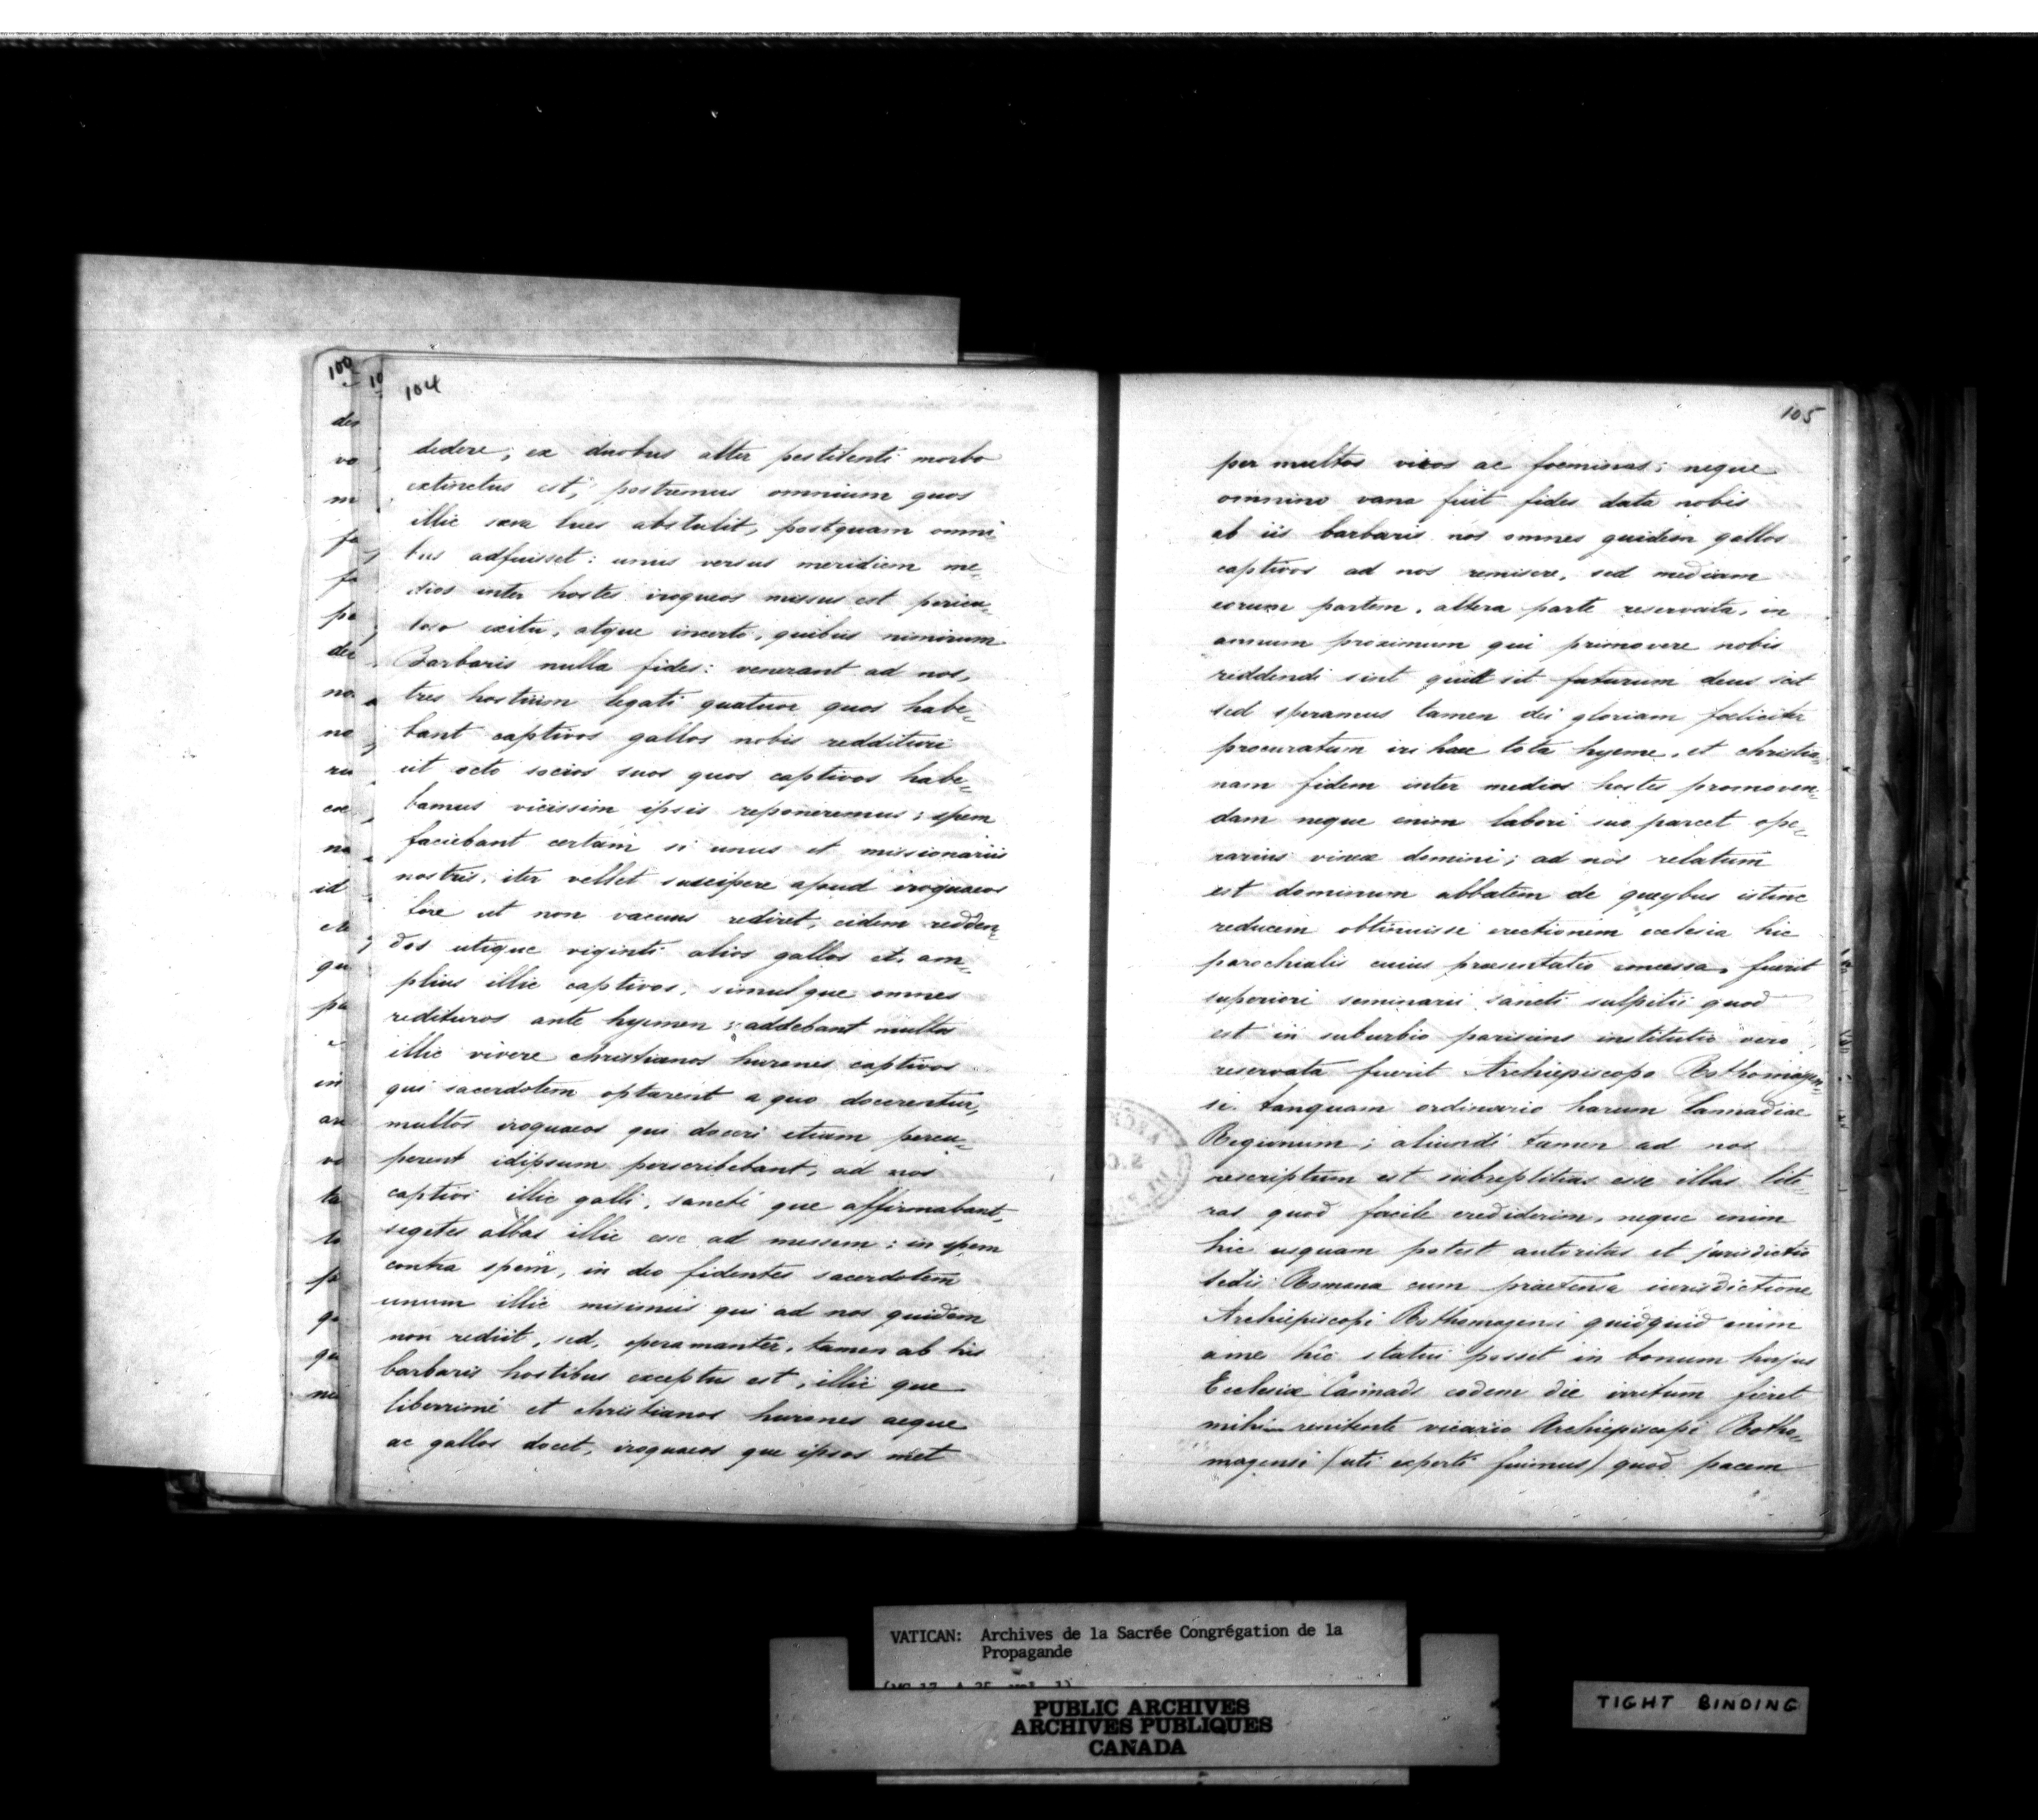 100
10
104
dedere; ex duobus alter pestilenti morbo
extinctus est; postremus omnium quos
illic sæva lues abstulit, postquam omni-
bus adfuisset: unus versus meridiem me-
dios inter hostes iroquaeos missus est pericu-
loso exitu, atque incerto, quibus nimirum
Barbaris nulla fides: venerant ad nos,
tres hostium legati quatuor quos habe-
bant captivos gallos nobis reddituri
ut octo socios suos quos captivos habe-
bamus vicissim ipsis reponeremus; spem
faciebant certam si unus et missionariis
nostris, iter vellet suscipere apud iroquaeos
fore ut non vacuus rediret, eidem redden-
dos utique viginti alios gallos et am-
plius illic captivos, simul que omnes
redituros ante hyemen; addebant multos
illic vivere christianos hurones captivos
qui sacerdotem optarent a quo docerentur,
multos iroquaeos qui doceri etiam percu-
perent idipsum perscribebant, ad nos
captivi illic galli, sancté que affirmabant,
segetes albas illic esse ad messem: in spem
contra spem, in deo fidentes sacerdotem
unum illic misimus qui ad nos quidem
non rediit, sed, peramanter, tamen ab his
barbaris hostibus exceptus est, illic que
liberrimé et christianos hurones aeque
ac gallos docet, iroquaeos que ipsos met
105
per multos viros ac foeminas; neque
omnino vana fuit fides data nobis
ab iis barbaris nos omnes quidem gallos
captivos ad nos remisere, sed mediam
eorum partem, altera parte reservata, in
annum proximum qui primo vere nobis
reddendi sint quid sit futurum deus scit
sed speramus tamen dei gloriam foeliciter
procuratum iri hac tota hyeme, et christia-
nam fidem inter medios hostes promoven-
dam neque enim labori suo parcet ope-
rarius vineæ domini; ad nos relatum
est dominum abbatem de queybus istinc
reducem obtinuisse erectionem ecclesia hic
parochialis cuius praesentatio concessa, fuerit
superiori seminarii sancti sulpitii quod
est in suburbio parisiens institutio vero
reservata fuerit Archiepiscopo Rothomagen-
si. tanquam ordinario harum Cannadiae
Regionum; aliundé tamen ad nos
rescriptum est subreptitias esse illas lite-
ras quod facile crediderim, neque enim
hic usquam potest autoritas et jurisdictio
sedis Romana cum praetensa iurisdictione
Archiepiscopi Rothomagensi quidquid enim
a me hîc statui posset in bonum hujus
Ecclesiæ Cannads eodem die irritum fieret
mihi renitente vicario Archiepiscopi Rotho-
magensi (uti experti fuimus) quod pacem
VATICAN: Archives de la Sacrée Congrégation de la
Propagande
PUBLIC ARCHIVES
ARCHIVES PUBLIQUES
CANADA
TIGHT BINDING